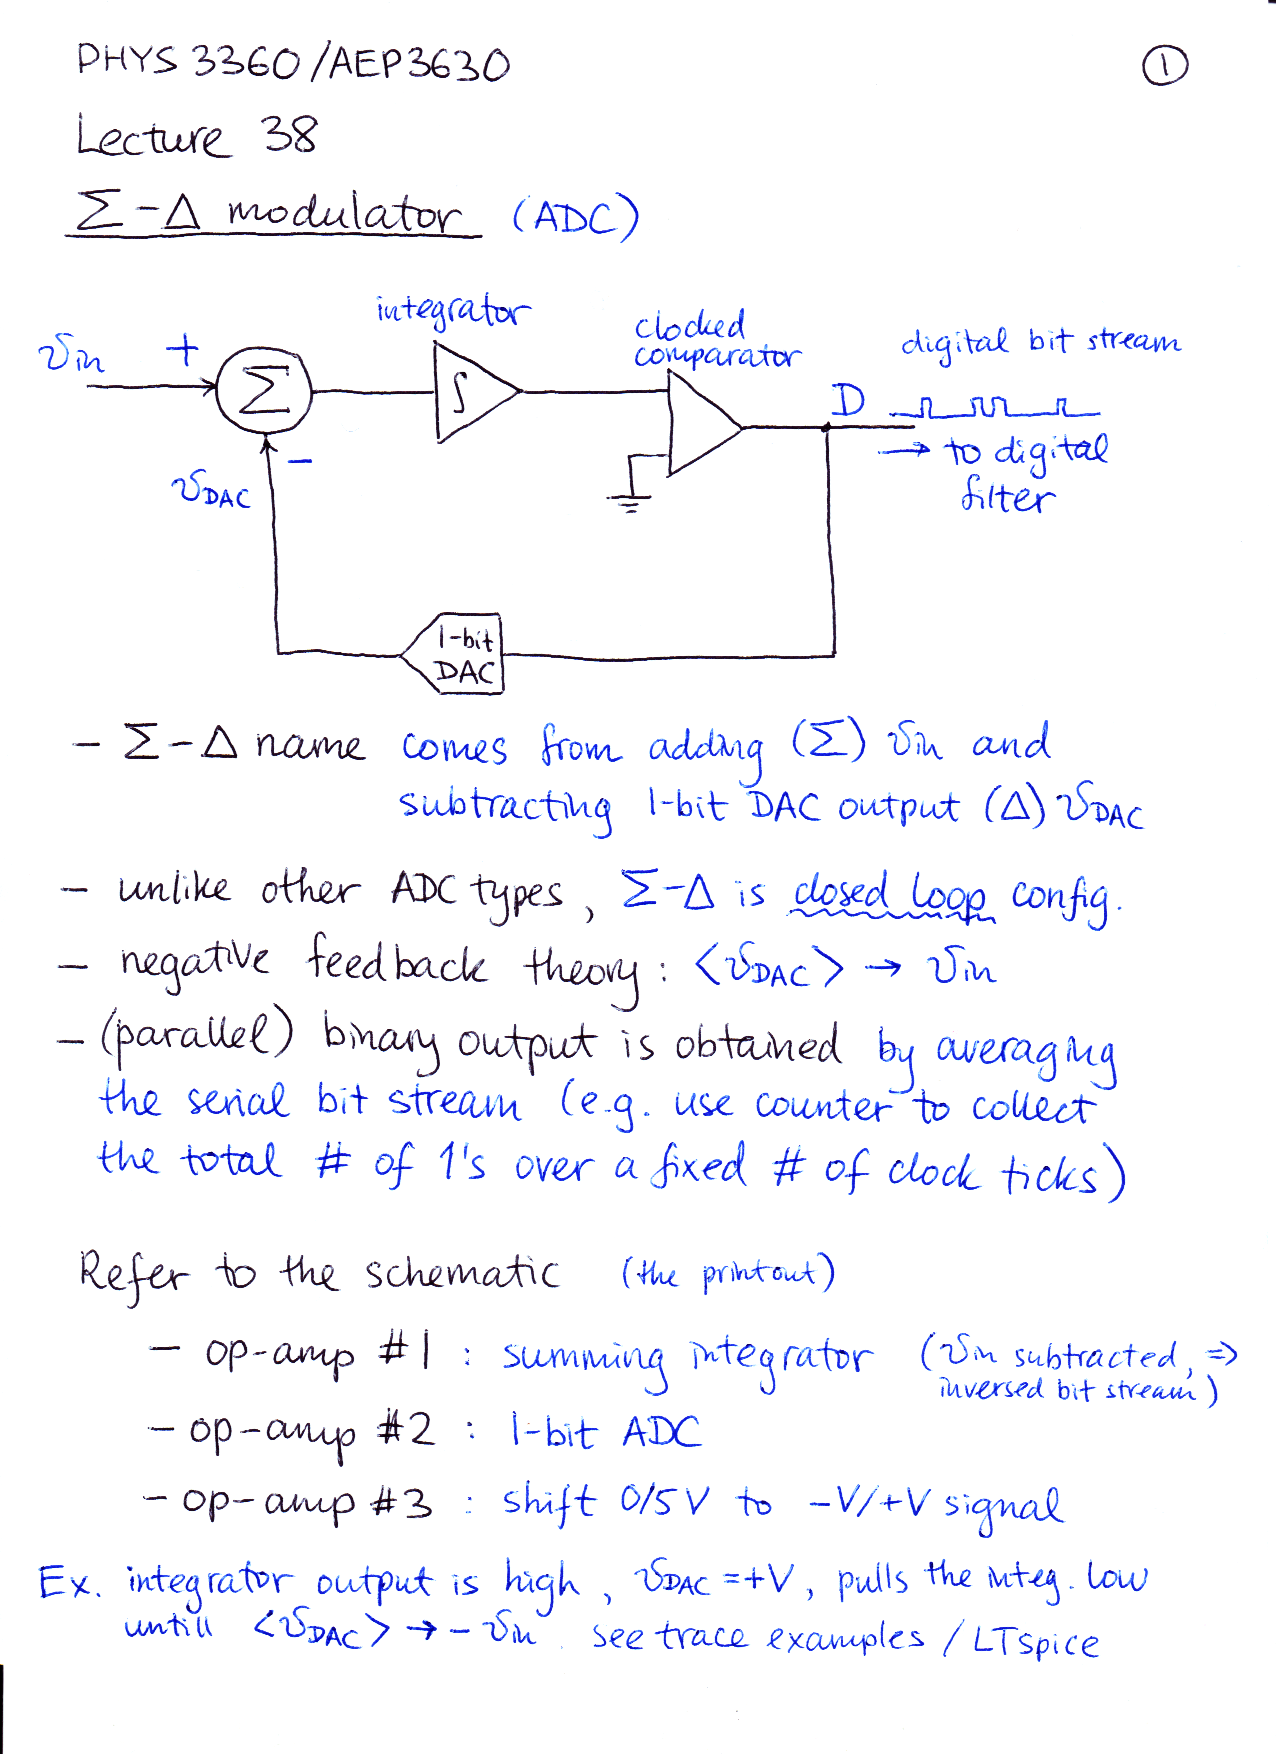 PHYS 3360/AEP3630
①
Lecture 38
Σ-Δ modulator (ADC)
integrator
clocked
comparator
digital bit stream
vin
+
Σ
∫
D
→ to digital
filter
−
vDAC
1-bit
DAC
- Σ-Δ name comes from adding (Σ) vin and
subtracting 1-bit DAC output (Δ) vDAC
- unlike other ADC types, Σ-Δ is closed loop config.
- negative feedback theory: <vDAC> → vin
- (parallel) binary output is obtained by averaging
the serial bit stream (e.g. use counter to collect
the total # of 1's over a fixed # of clock ticks)
Refer to the schematic (the printout)
- op-amp #1 : summing integrator (vin subtracted, ⇒
inversed bit stream)
- op-amp #2 : 1-bit ADC
- op-amp #3 : shift 0/5V to -V/+V signal
Ex. integrator output is high, vDAC = +V, pulls the integ. low
untill <vDAC> → - vin. see trace examples / LTspice